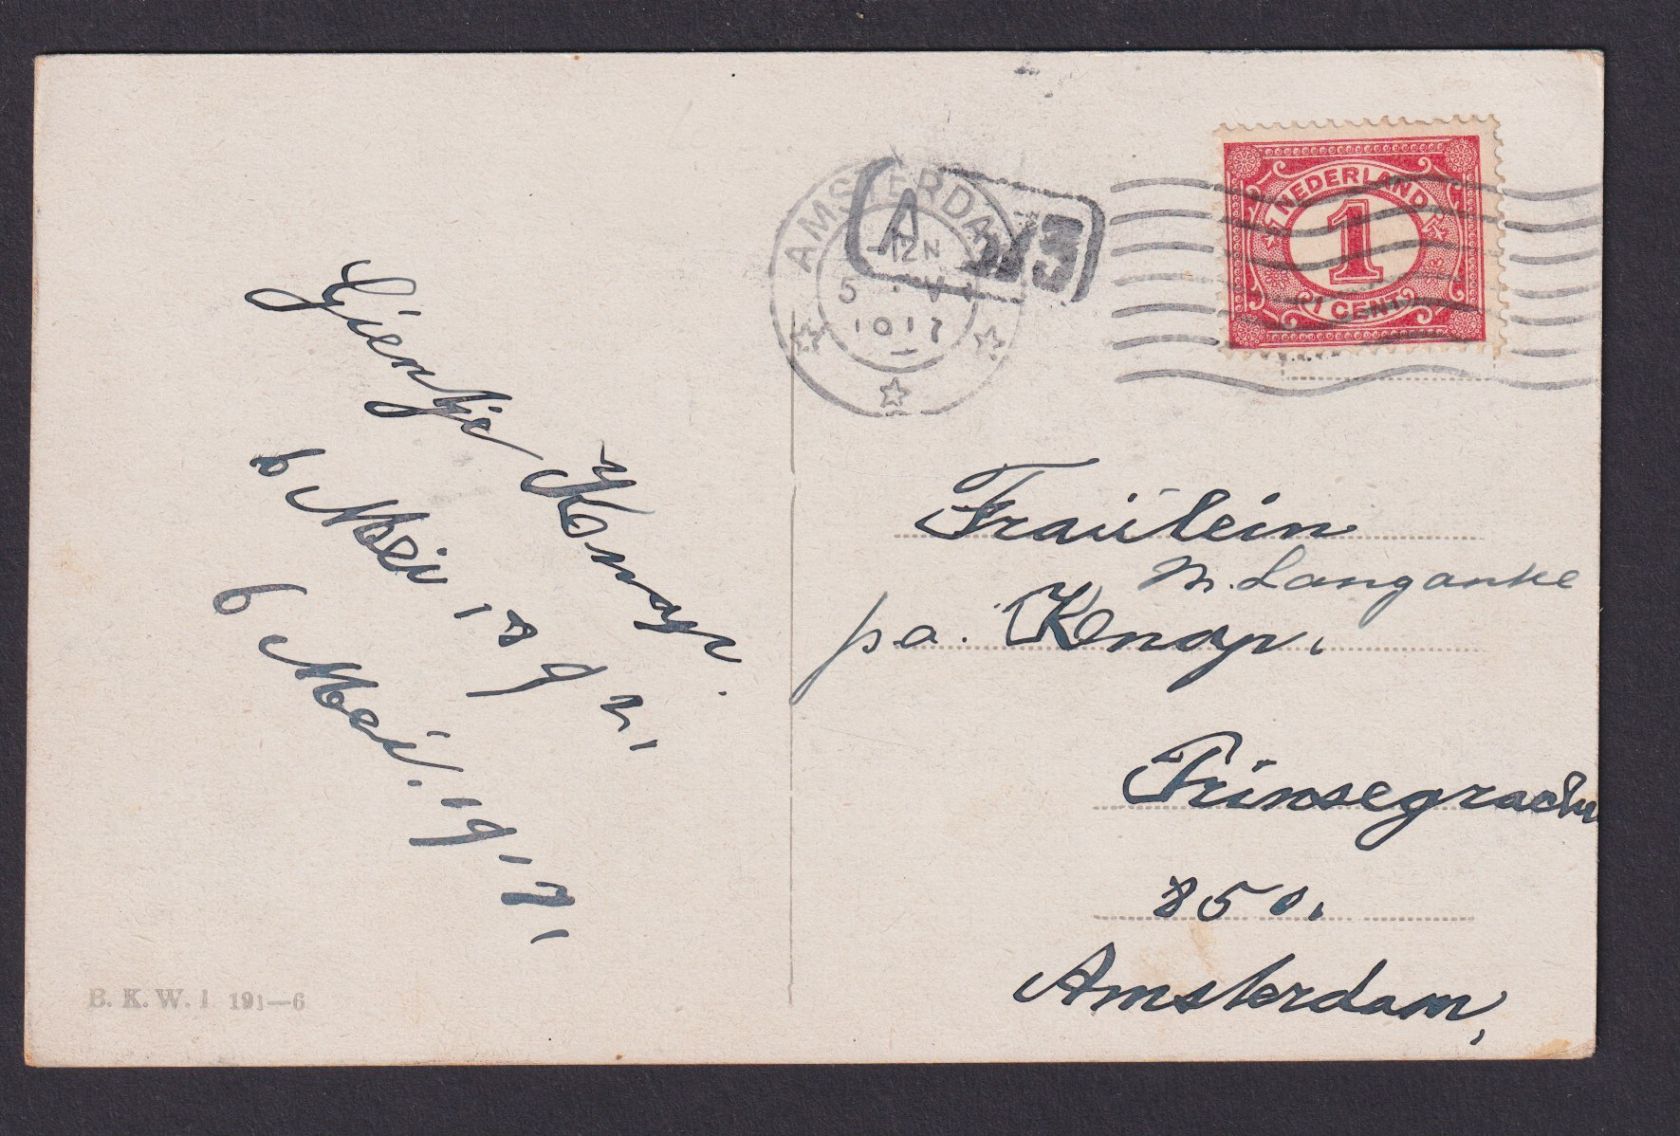 Gjentje Knap.
6 Mei 1892.
6 Mei. 1917.
B. K. W. I 191-6
AMSTERDAM
12 N
5 . V
1917
A 23
NEDERLAND
1
1 CENT
Fraülein
M. Langanke
pa. Knap.
Prinsegracht
850.
Amsterdam,